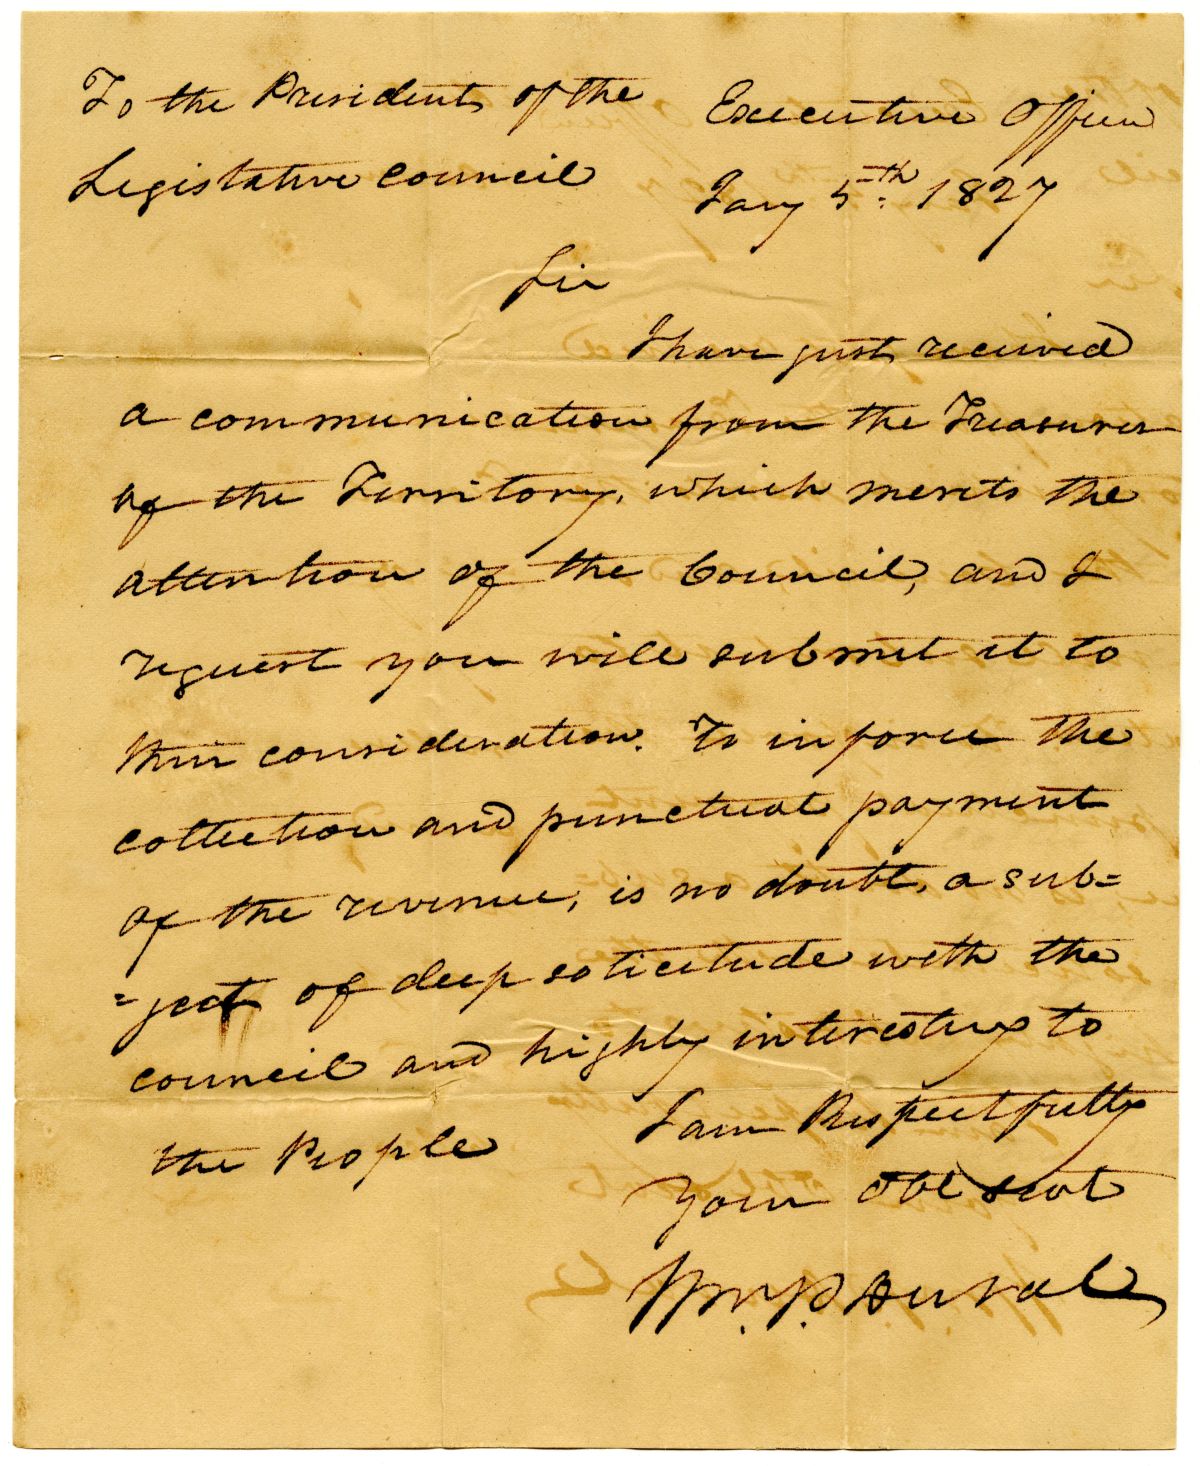 To the President of the
Legislative Council
Executive Office
Jany 5th. 1827
Sir
I have just received
a communication from the Treasurer
of the Territory, which merits the
attention of the Council, and I
request you will submit it to
their consideration. To inforce the
collection and punctual payment
of the revenue, is no doubt, a sub=
=ject of deep solicitude with the
council and highly interesting to
the People
I am Respectfully
Your Obt servt
Wm. P. Duval